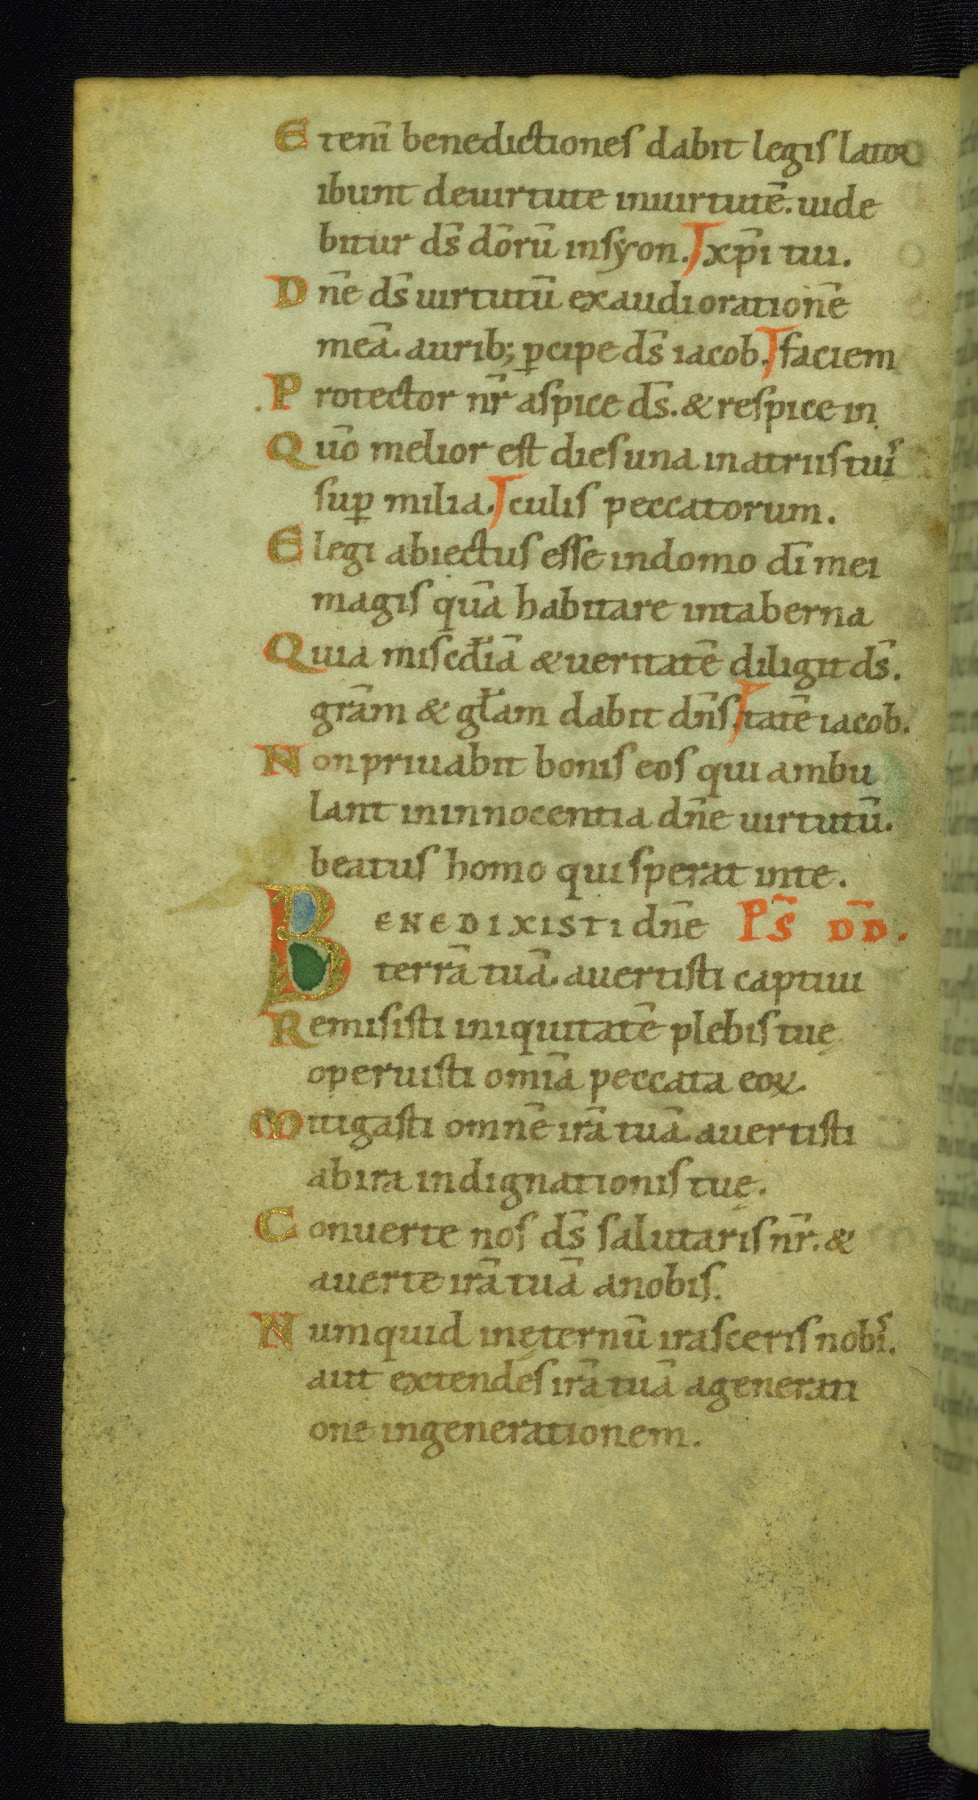 Etenī benedictiones dabit legis lator
ibunt deuirtute inuirtutē. uide
bitur ds̄ dōrū insẏon. xp̄i tui.
Dn̄e ds̄ uirtutū exaudi orationē
meā. aurib; ꝑcipe ds̄ iacob. faciem
Protector nr̄ aspice ds̄. & respice in
Quō melior est dies una inatriis tuis
suꝑ milia. culis peccatorum.
Elegi abiectus esse indomo dī mei
magis quā habitare intaberna
Quia misc̄diā & ueritatē diligit ds̄.
grām & gl̄am dabit dn̄s. tatē iacob.
Non priuabit bonis eos qui ambu
lant ininnocentia dn̄e uirtutū.
beatus homo qui sperat inte.
BENEDIXISTI dn̄e Ps̄ DD̄.
terrā tuā. auertisti captiui
Remisisti iniquitatē plebis tuę
operuisti om̄ia peccata eoꝝ.
Mitigasti omnē irā tuā. auertisti
abira indignationis tuę.
Conuerte nos ds̄ salutaris nr̄. &
auerte irā tuā anobis.
Numquid inęternū irasceris nobis.
aut extendes irā tuā agenerati
one ingenerationem.